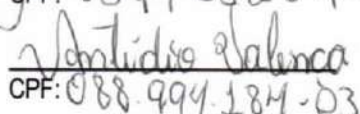 Antídio Valença
CPF: 088.994.184-03